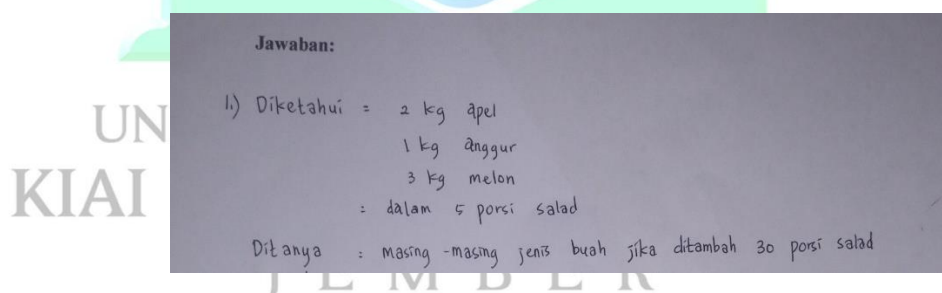 Jawaban:
UN
1.) Diketahui = 2 kg apel
1 kg anggur
KIAI
3 kg melon
= dalam 5 porsi salad
Ditanya : masing-masing jenis buah jika ditambah 30 porsi salad
JEMBER